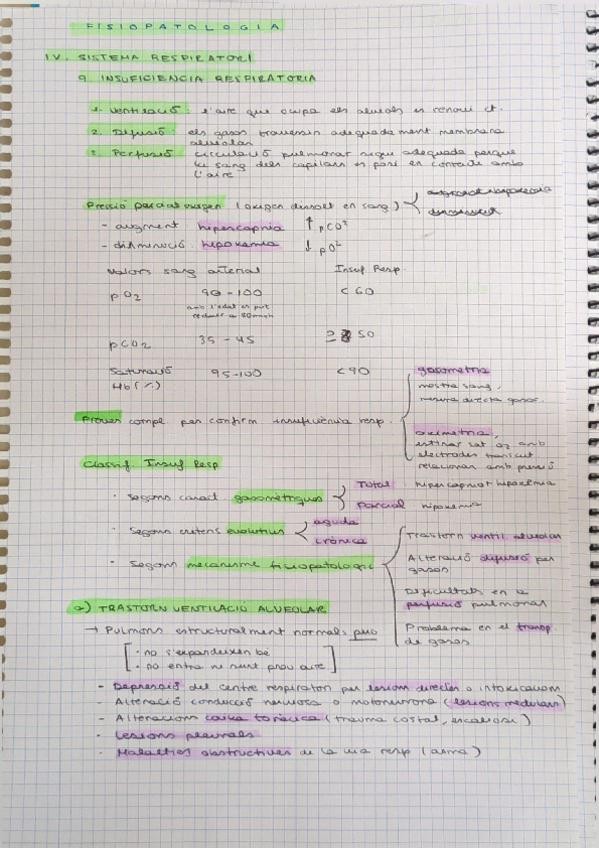 FISIOPATOLOGIA
IV. SISTEMA RESPIRATORI
9. INSUFICIENCIA RESPIRATORIA
1. Ventilació : l'aire que ocupa els alveols es renovi ct.
2. Difusió : els gasos travessin adequadament membrana
alveolar
3. Perfusió : circulació pulmonar sigui adequada perque
la sang dels capilars es posi en contacte amb
l'aire
Pressió parcial oxigen ( oxigen dissolt en sang )
- augment hipercapnia ↑ pCO²
- disminució hipoxemia ↓ pO²
Valors sang arterial Insuf Resp.
pO2 90-100 <60
amb l'edat es pot
reduir a 80mmh
pCO2 35-45 50
Saturació 95-100 <90
Hb (%)
gasometria
mostra sang,
mesura directa gasos.
Proves compl. per confirm insuficiència resp.
oximetria,
estimar sat O2 amb
electrodes transcut
relacionar amb pressió
Classif. Insuf Resp
· Segons caract gasomètriques
Total : hipercapnia + hipoxèmia
Parcial hipoxemia
· Segons criteris evolutius
aguda
crònica
· Segons mecanisme fisiopatologic
Trastorn ventil. alveolar
Alteració difusió per
gasos
Dificultats en la
perfusió pulmonar
Problema en el transp.
de gasos
a) TRASTORN VENTILACIÓ ALVEOLAR
→ Pulmons estructuralment normals, pero
· no s'expandeixen bé
· no entra ni surt prou aire
- Depressió del centre respiratori per lesions directes o intoxicacions
- Alteració conducció nerviosa o motoneurona ( lesions medulars)
- Alteracions caixa toràcica ( trauma costal, escoliosi )
- Lesions pleurals
- Malalties obstructives de la via resp ( asma )